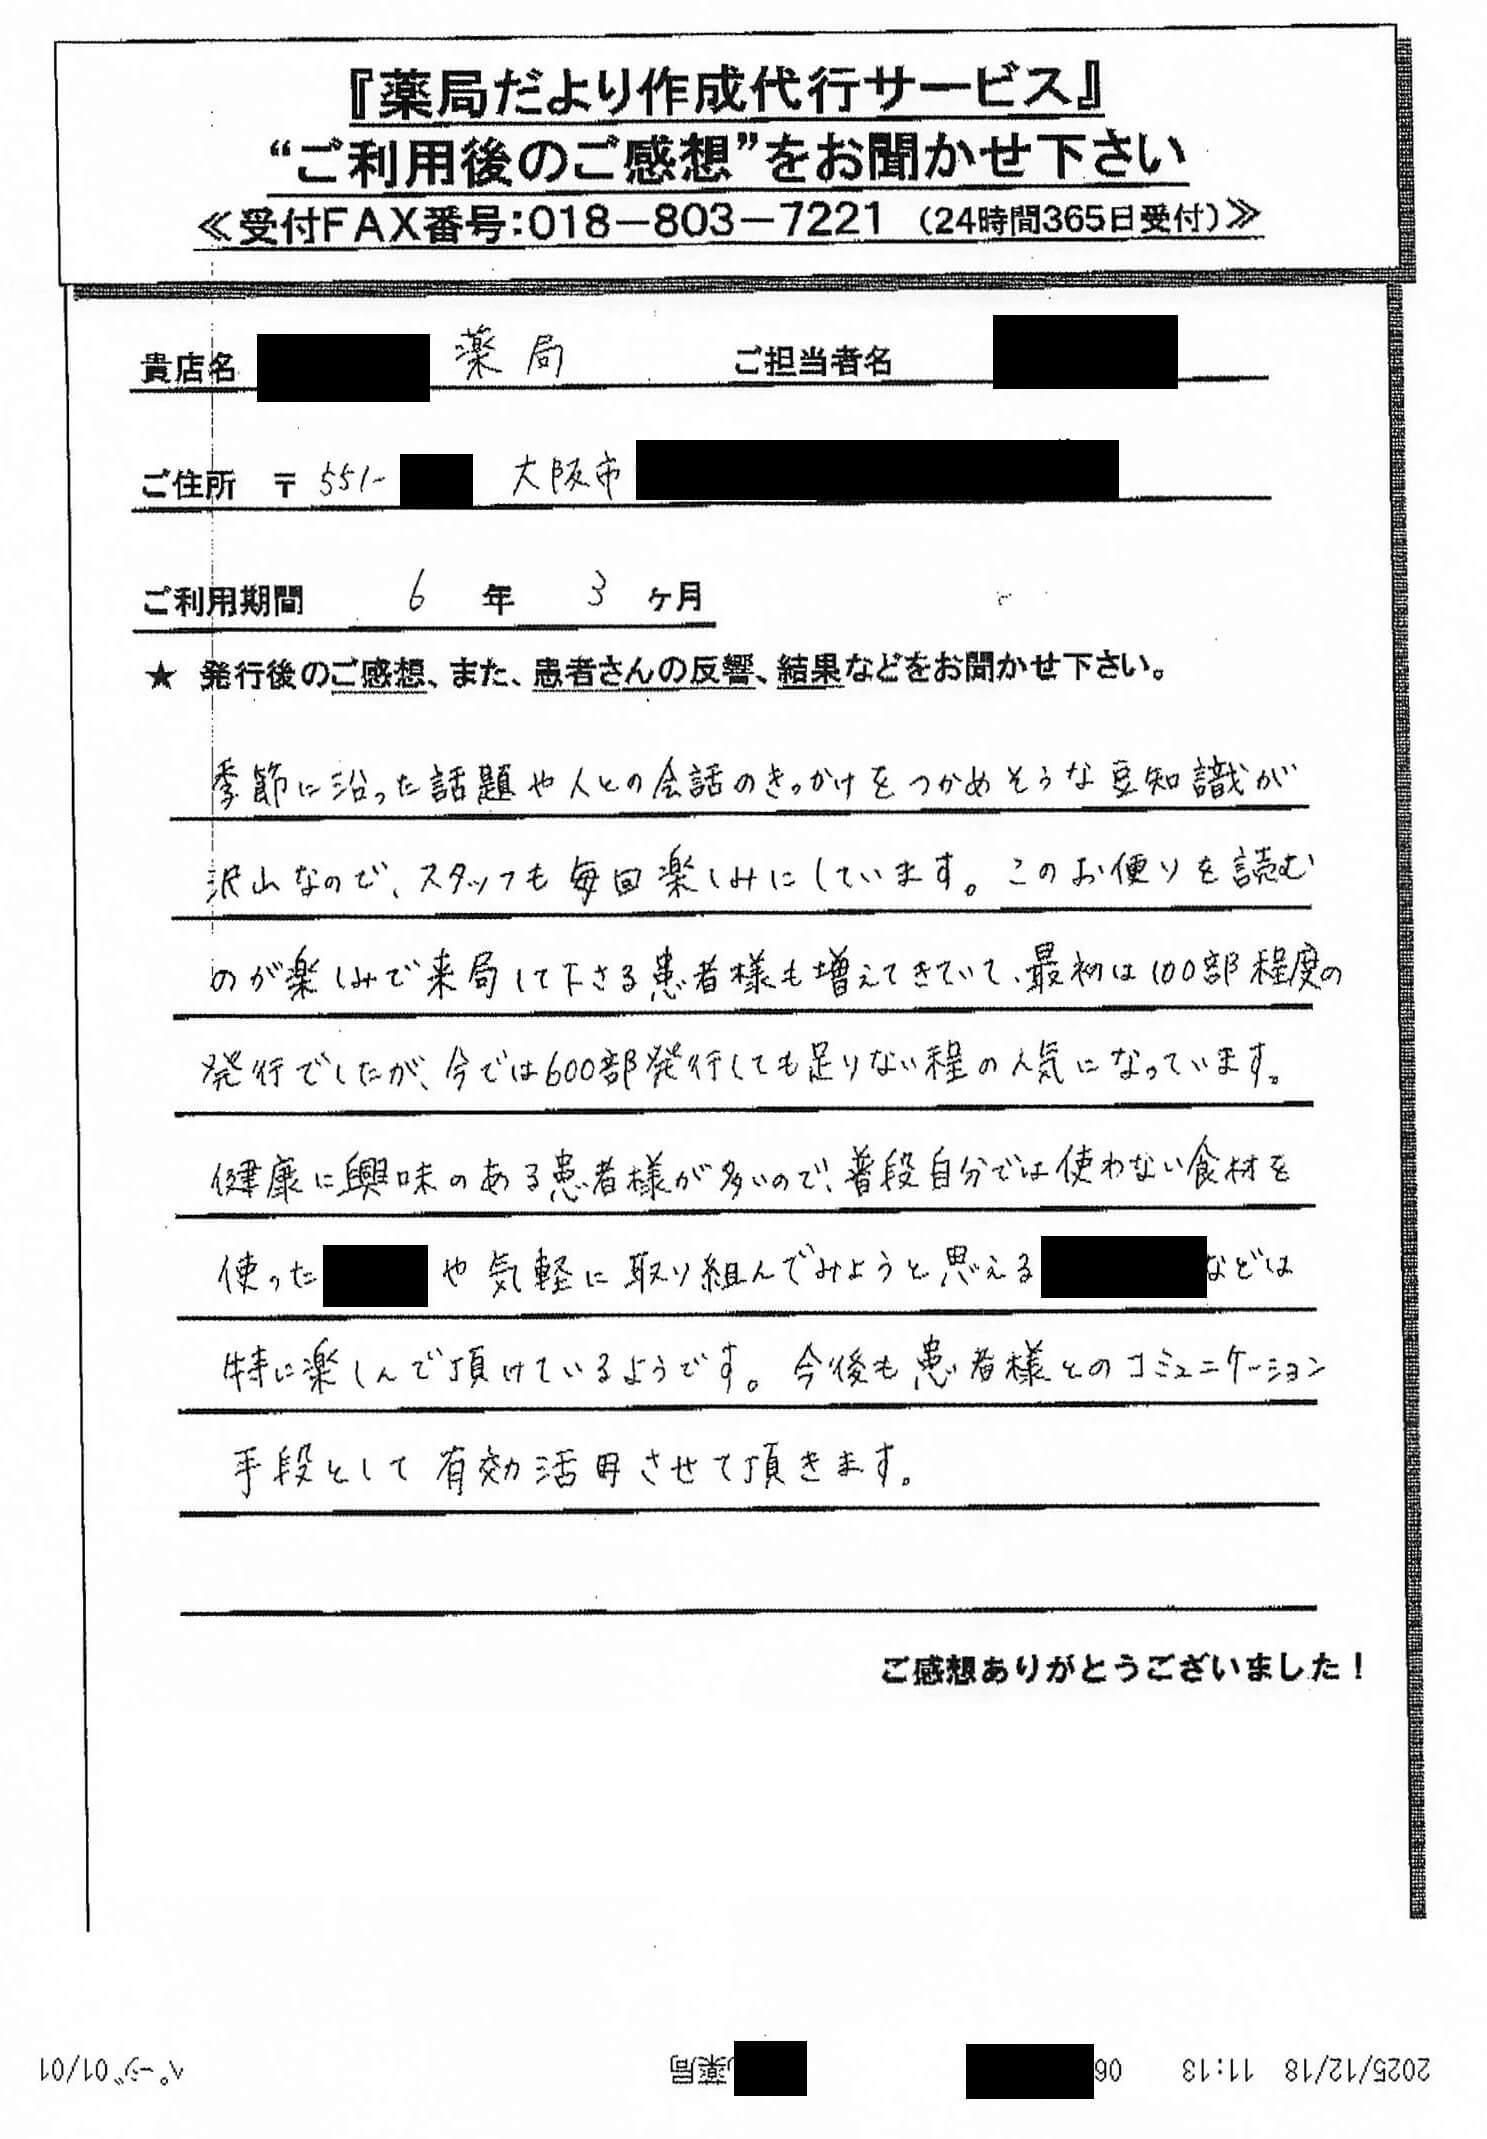 『薬局だより作成代行サービス』
“ご利用後のご感想”をお聞かせ下さい
≪受付FAX番号：018－803－7221（24時間365日受付）≫
貴店名 薬局 ご担当者名
ご住所 〒551- 大阪市
ご利用期間 6 年 3 ヶ月
★ 発行後のご感想、また、患者さんの反響、結果などをお聞かせ下さい。
季節に沿った話題や人との会話のきっかけをつかめそうな豆知識が
沢山なので、スタッフも毎回楽しみにしています。このお便りを読む
のが楽しみで来局して下さる患者様も増えてきていて、最初は100部程度の
発行でしたが、今では600部発行しても足りない程の人気になっています。
健康に興味のある患者様が多いので、普段自分では使わない食材を
使った や気軽に取り組んでみようと思える などは
特に楽しんで頂けているようです。今後も患者様とのコミュニケーション
手段として有効活用させて頂きます。
ご感想ありがとうございました！
2025/12/18 11:13 06 薬局 ﾍﾟｰｼﾞ 01/01